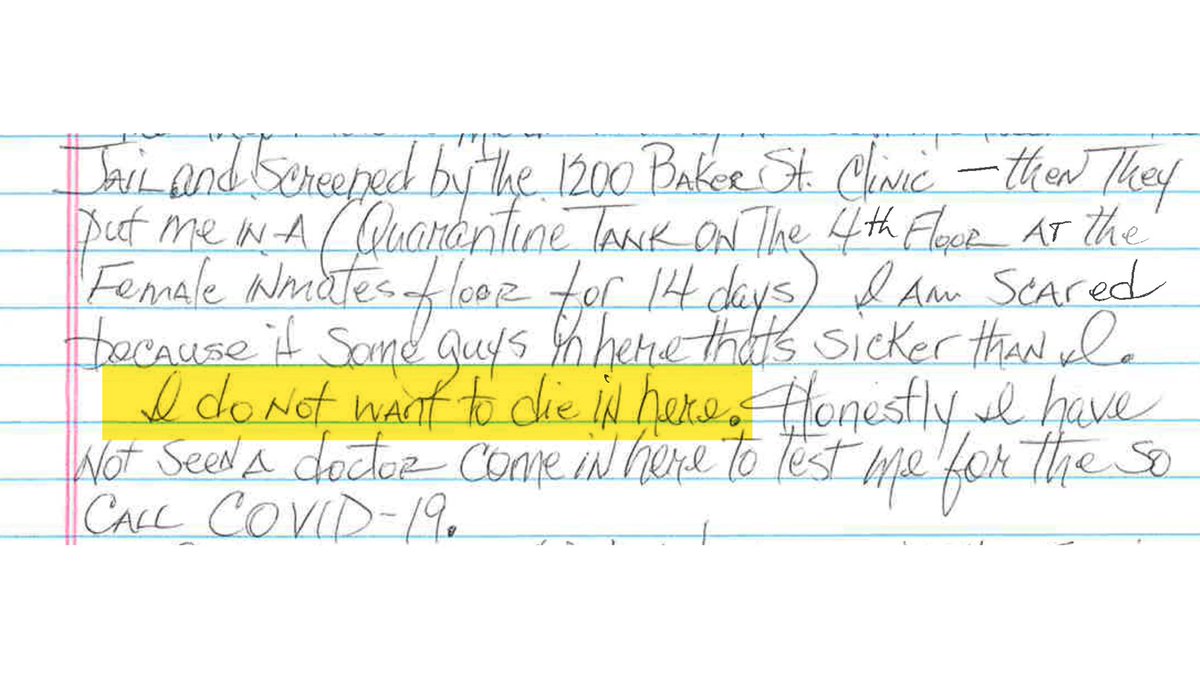 Jail and Screened by the 1200 Baker St. Clinic — then They
put me in A (Quarantine Tank on The 4th Floor At the
Female inmates floor for 14 days) I Am Scared
because it some guys in here that's sicker than I.
I do not want to die in here. Honestly I have
Not Seen A doctor come in here to Test me for the so
Call COVID-19.